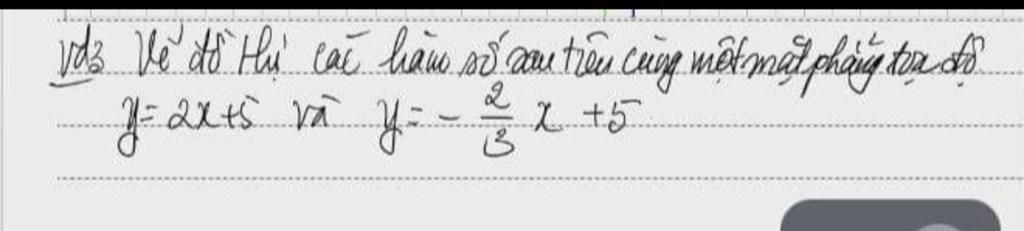 Vd3 Vẽ đồ thị các hàm số sau trên cùng một mặt phẳng tọa độ
y = 2x+5 và y = - 2/3 x +5